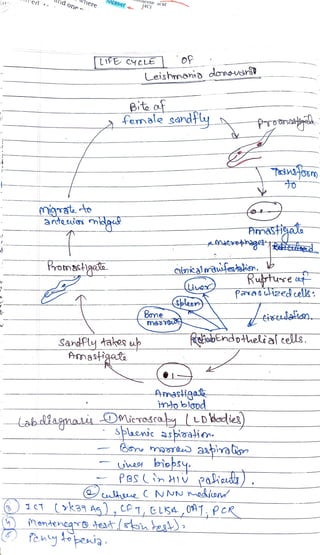 where
LIFE CYCLE OF
Leishmania donovani
Bite of
female sandfly
Promastigote
Transform
to
Amastigote
macrophages
Rupture of
parasitized cells.
circulation.
Reticulo Endothelial cells.
clinical manifestation.
Liver
Spleen
Bone
marrow
Amastigate
into blood
Sandfly takes up
Amastigate
Promastigate
migrate to
anterior midgut
Lab diagnosis - ① Microscopy (LD bodies)
- Splenic aspiration.
- Bone marrow aspiration
- Liver biopsy.
- PBS (in HIV patients).
② culture (NNN medium
③ ICT (rk39 Ag), CFT, ELISA, DAT, PCR
④ Montenegro test (skin test).
⑤